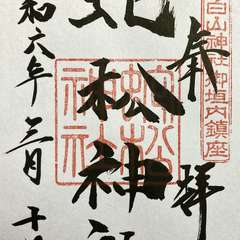 奉拝
白山神社御垣内鎮座
蛇松神社
蛇松神社
令和六年三月十